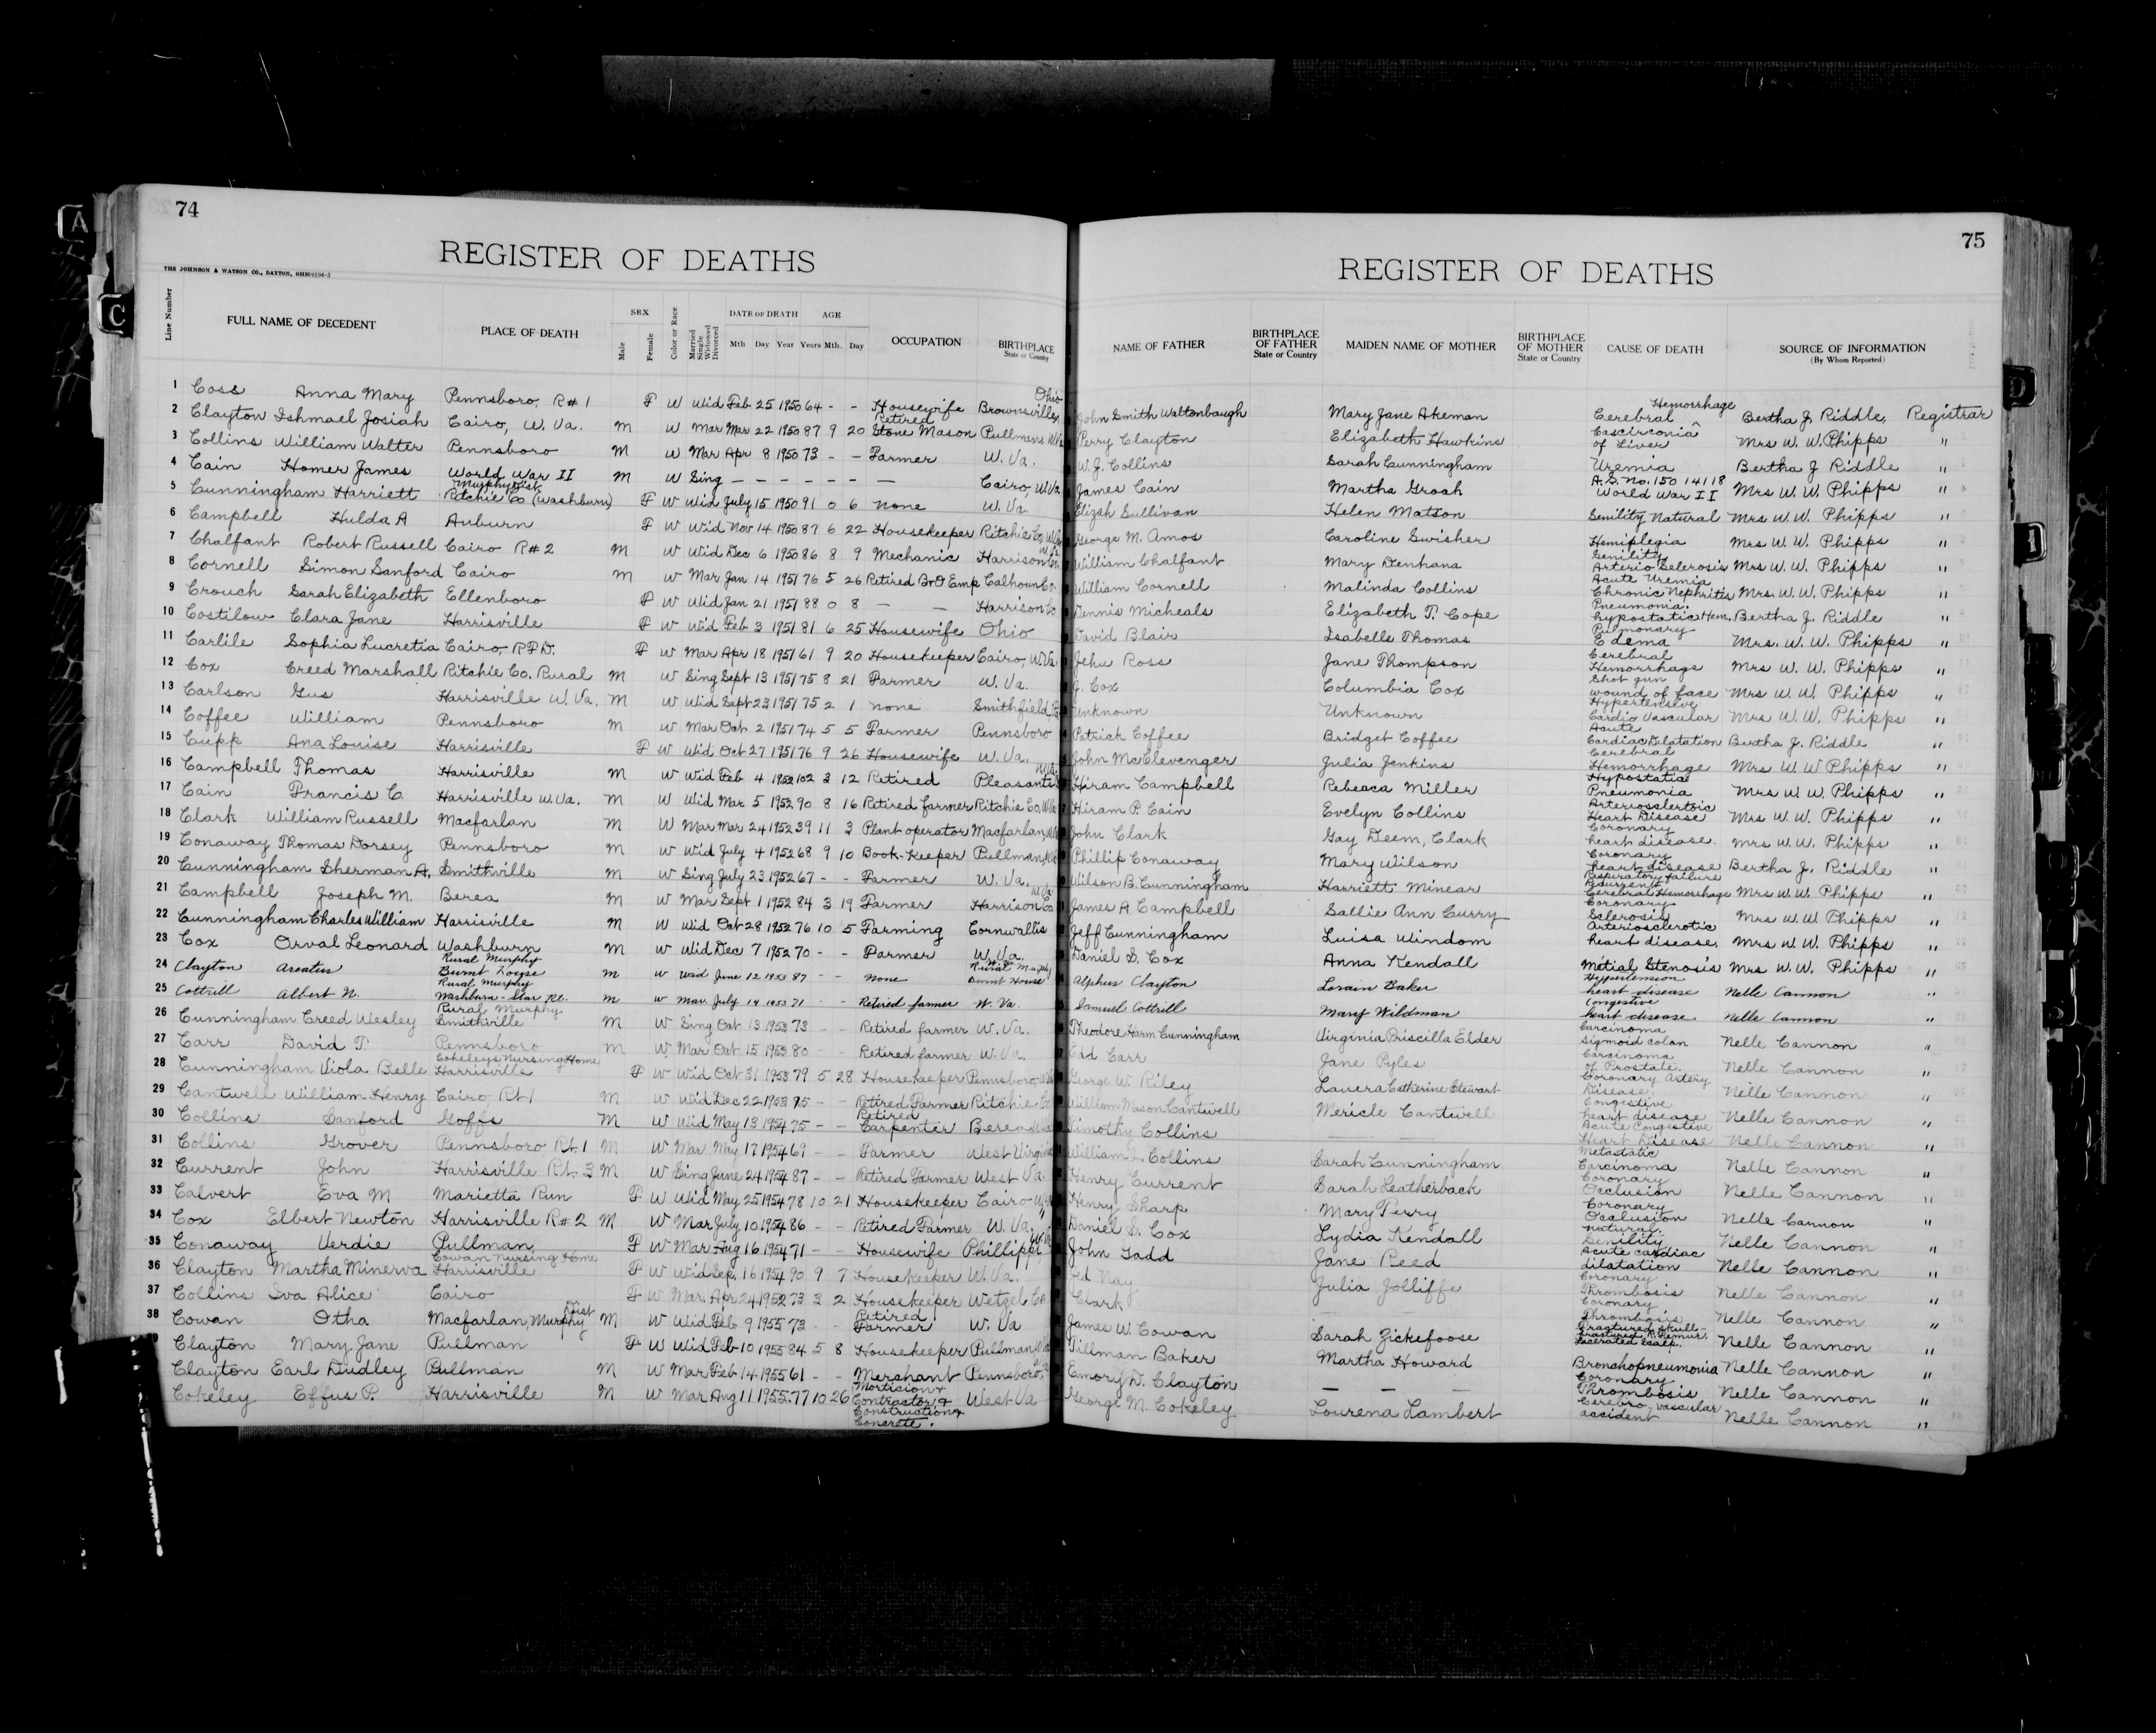 74
REGISTER OF DEATHS
THE JOHNSON & WATSON CO., DAYTON, OHIO
Line Number FULL NAME OF DECEDENT PLACE OF DEATH SEX Male Female Color or Race Married Single Widowed Divorced DATE OF DEATH Mth Day Year AGE Years Mth. Day OCCUPATION BIRTHPLACE State or Country
1 Coss Anna Mary Pennsboro, R#1 F W Wid Feb 25 1950 64 - - Housewife Brownsville, Ohio
2 Clayton Ishmael Josiah Cairo, W. Va. M W Mar Mar 22 1950 87 9 20 Retired Stone Mason Pullman, W.Va.
3 Collins William Walter Pennsboro M W Mar Apr 8 1950 73 - - Farmer W. Va.
4 Cain Homer James World War II M W Sing - - - - - - - Cairo, W.Va.
5 Cunningham Harriett Murphy Dist Ritchie Co (Washburn) F W Wid July 15 1950 91 0 6 none W. Va.
6 Campbell Hulda A Auburn F W Wid Nov 14 1950 87 6 22 Housekeeper Ritchie Co, W.Va.
7 Chalfant Robert Russell Cairo R#2 M W Wid Dec 6 1950 86 8 9 Mechanic Harrison Co.
8 Cornell Simon Sanford Cairo M W Mar Jan 14 1951 76 5 26 Retired B+O Emp Calhoun Co.
9 Crouch Sarah Elizabeth Ellenboro F W Wid Jan 21 1951 88 0 8 - - Harrison Co
10 Costilow Clara Jane Harrisville F W Wid Feb 3 1951 81 6 25 Housewife Ohio
11 Carlile Sophia Lucretia Cairo, R.F.D. F W Mar Apr 18 1951 61 9 20 Housekeeper Cairo, W.Va.
12 Cox Creed Marshall Ritchie Co. Rural M W Sing Sept 13 1951 75 8 21 Farmer W. Va.
13 Carlson Gus Harrisville W. Va. M W Wid Sept 23 1951 75 2 1 none Smithfield
14 Coffee William Pennsboro M W Mar Oct 2 1951 74 5 5 Farmer Pennsboro
15 Cupp Ana Louise Harrisville F W Wid Oct 27 1951 76 9 26 Housewife W. Va.
16 Campbell Thomas Harrisville M W Wid Feb 4 1952 102 3 12 Retired Pleasants W.Va.
17 Cain Francis C. Harrisville W. Va. M W Wid Mar 5 1952 90 8 16 Retired farmer Ritchie Co, W.Va
18 Clark William Russell Macfarlan M W Mar Mar 24 1952 39 11 3 Plant operator Macfarlan,
19 Conaway Thomas Dorsey Pennsboro M W Wid July 4 1952 68 9 10 Book-Keeper Pullman,
20 Cunningham Sherman A. Smithville M W Sing July 23 1952 67 - - Farmer W. Va.
21 Campbell Joseph M. Berea M W Mar Sept 1 1952 84 3 19 Farmer Harrison Co W.Va.
22 Cunningham Charles William Harrisville M W Wid Oct 28 1952 76 10 5 Farming Cornwallis
23 Cox Orval Leonard Washburn M W Wid Dec 7 1952 70 - - Farmer W. Va.
24 Clayton Areatus Rural Murphy Burnt House M W Wid June 12 1953 87 - - none Rural Murphy Burnt House
25 Cottrill Albert N. Rural Murphy Washburn - Star Rt. M W Mar. July 14 1953 71 - - Retired farmer W. Va.
26 Cunningham Creed Wesley Rural Murphy Smithville M W Sing Oct 13 1953 73 - - Retired farmer W. Va.
27 Carr David T. Pennsboro M W Mar Oct 15 1953 80 - - Retired farmer W. Va.
28 Cunningham Viola Belle Cokeleys Nursing Home Harrisville F W Wid Oct 31 1953 79 5 28 Housekeeper Pennsboro
29 Cantwell William Henry Cairo, Rt 1 M W Wid Dec 22 1953 75 - - Retired Farmer Ritchie Co
30 Collins Sanford Goffs M W Wid May 13 1954 75 - - Retired Carpenter Berea
31 Collins Grover Pennsboro, Rt. 1 M W Mar May 17 1954 69 - - Farmer West Virginia
32 Current John Harrisville Rt. 3 M W Sing June 24 1954 87 - - Retired Farmer West Va.
33 Calvert Eva M Marietta Run F W Wid May 25 1954 78 10 21 Housekeeper Cairo
34 Cox Elbert Newton Harrisville R#2 M W Mar July 10 1954 86 - - Retired Farmer W. Va.
35 Conaway Verdie Pullman F W Mar Aug 16 1954 71 - - Housewife Phillippi
36 Clayton Martha Minerva Cowan Nursing Home Harrisville F W Wid Sep. 16 1954 90 9 7 Housekeeper W. Va.
37 Collins Iva Alice Cairo F W Mar. Apr 24 1952 73 3 2 Housekeeper Wetzel Co
38 Cowan Otha Macfarlan, Murphy Dist M W Wid Feb 9 1955 73 - - Retired Farmer W. Va
Clayton Mary Jane Pullman F W Wid Feb 10 1955 84 5 8 Housekeeper Pullman
Clayton Earl Dudley Pullman M W Mar Feb 14 1955 61 - - Merchant Pennsboro,
Cokeley Effus P. Harrisville M W Mar Aug 11 1955 77 10 26 Mortician + Contractor + Construction + Concrete. West Va
75
REGISTER OF DEATHS
NAME OF FATHER BIRTHPLACE OF FATHER State or Country MAIDEN NAME OF MOTHER BIRTHPLACE OF MOTHER State or Country CAUSE OF DEATH SOURCE OF INFORMATION (By Whom Reported)
John Smith Waltonbaugh Mary Jane Akeman Cerebral Hemorrhage Bertha J. Riddle, Registrar
Perry Clayton Elizabeth Hawkins of Liver Mrs W. W. Phipps "
W. J. Collins Sarah Cunningham Uremia Bertha J Riddle "
James Cain Martha Groah A.S. No. 150 141 18 World War II Mrs W. W. Phipps "
Elizah Sullivan Helen Matson Senility Natural Mrs W. W. Phipps "
George M. Amos Caroline Swisher Hemiplegia Mrs W. W. Phipps "
William Chalfant Mary Denhana Senility Arterio Sclerosis Mrs W. W. Phipps "
William Cornell Malinda Collins Acute Uremia Chronic Nephritis Mrs. W. W. Phipps "
Dennis Micheals Elizabeth T. Cope Pneumonia. hypostatic Hem. Bertha J. Riddle "
David Blair Isabelle Thomas Pulmonary Edema Mrs. W. W. Phipps "
Jehu Ross Jane Thompson Cerebral Hemorrhage Mrs W. W. Phipps "
J. Cox Columbia Cox Shot gun wound of face Mrs W. W. Phipps "
Unknown Unknown Hypertensive Cardio Vascular Mrs W. W. Phipps "
Patrick Coffee Bridget Coffee Acute Cardiac Dilatation Bertha J. Riddle "
John McClevenger Julia Jenkins Cerebral Hemorrhage Mrs W. W Phipps "
Hiram Campbell Rebecca Miller Hypostatic Pneumonia Mrs W. W. Phipps "
Hiram P. Cain Evelyn Collins Arteriosclertoic Heart Disease Mrs W. W. Phipps "
John Clark Gay Deem, Clark Coronary heart disease. Mrs W. W. Phipps "
Phillip Conaway Mary Wilson Coronary heart disease Bertha J. Riddle "
Wilson B. Cunningham Harriett Minear Respiratory failure Cerebral Hemorrhage Mrs W. W. Phipps "
James A Campbell Sallie Ann Curry Coronary Sclerosis Mrs W. W. Phipps "
Jeff Cunningham Luisa Windom Arteriosclerotic heart disease. Mrs W. W. Phipps "
Daniel S. Cox Anna Kendall Metial Stenosis Mrs W. W. Phipps "
Alpheus Clayton Lorain Baker Hypertension heart disease Nelle Cannon "
Samuel Cottrill Mary Wildman Congestive heart disease Nelle Cannon "
Theodore Harm Cunningham Virginia Priscilla Elder Carcinoma sigmoid colon Nelle Cannon "
Edd Carr Jane Pyles Carcinoma of Prostate. Nelle Cannon "
George W. Riley Lauera Catherine Stewart Coronary Artery Disease Nelle Cannon "
William Mason Cantwell Mericle Cantwell Congestive heart disease Nelle Cannon "
Timothy Collins - - - Acute Congestive Heart Disease Nelle Cannon "
William L. Collins Sarah Cunningham Metastatic Carcinoma Nelle Cannon "
Henry Current Sarah Leatherback Coronary Occlusion Nelle Cannon "
Henry Sharp Mary Perry Coronary Occlusion Nelle Cannon "
Daniel S. Cox Lydia Kendall natural. Senility Nelle Cannon "
John Tadd Jane Reed Acute cardiac dilatation Nelle Cannon "
Jed Nay Julia Jolliffe Coronary Thrombosis Nelle Cannon "
Clark - - - Coronary Thrombosis Nelle Cannon "
James W. Cowan Sarah Zickefoose Fractured skull - Fractured R. Femur. Lacerated Scalp. Nelle Cannon "
Tillman Baker Martha Howard Bronchopneumonia Nelle Cannon "
Emory D. Clayton - - - Coronary Thrombosis Nelle Cannon "
George M. Cokeley Lourena Lambert Cerebro, vascular accident Nelle Cannon "
A
C
D
I